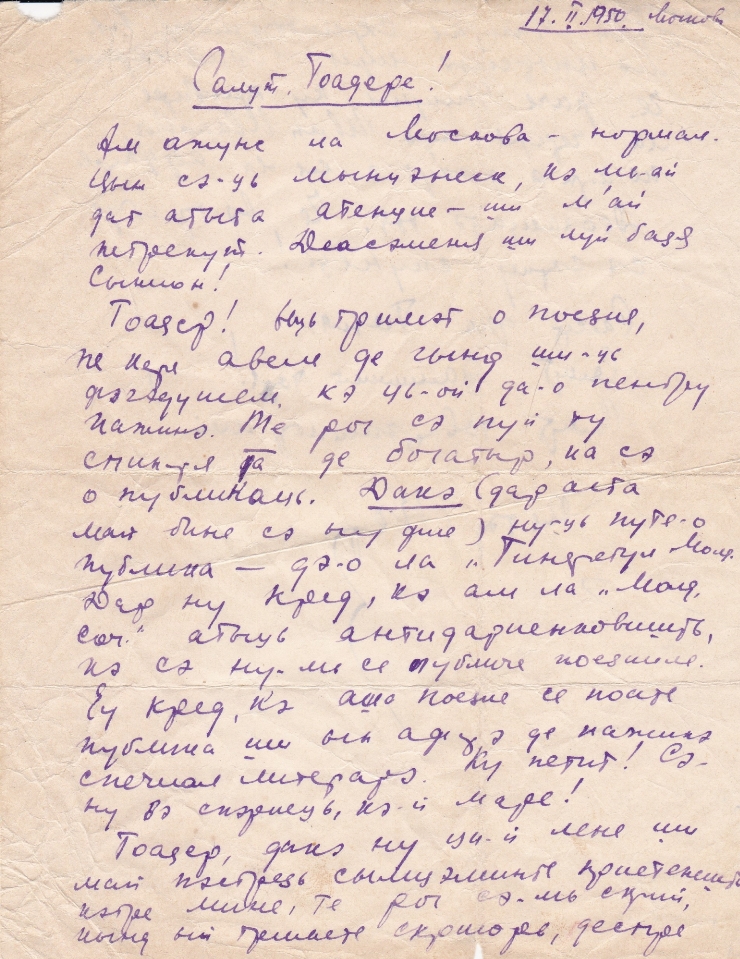 17.II.1950. Москова
Салут, Тоадере!
Ам ажунс ла Москова – нормал.
Цын сэ-ць мынцэмеск, кэ м-ай
дат атыта атенцие – ши м'ай
петрекут. Деасэменя ши луй бадя
Сымион!
Тоадер! Ыць тримет о поезие,
пе каре авем де гынд ши-ць
фэгэдуисем, кэ ць-ой да-о пентру
пажинэ. Те рог сэ пуй ту
спинаря та де богатыр, ка сэ
о публикаць. Дакэ (дар аста
май бине сэ ну фие) ну-ць путе-о
публика – дэ-о ла „Тинеретул Молд.
Дар ну кред, кэ ам ла „Молд.
соч." атыць антидариенковишть,
кэ сэ ну-мь се публиче поезииле.
Еу кред, кэ аша поезие се поате
публика ши ын афарэ де пажина
спечиал литерарэ. Ку петит! Сэ-
ну вэ спэриець, кэ-й маре!
Тоадер, дакэ ну ци-й лене ши
май пэстрезь сымцэминте приетенешть
кэтре мине, те рог сэ-мь скрий,
кынд ый тримете скрисоаре, деспре